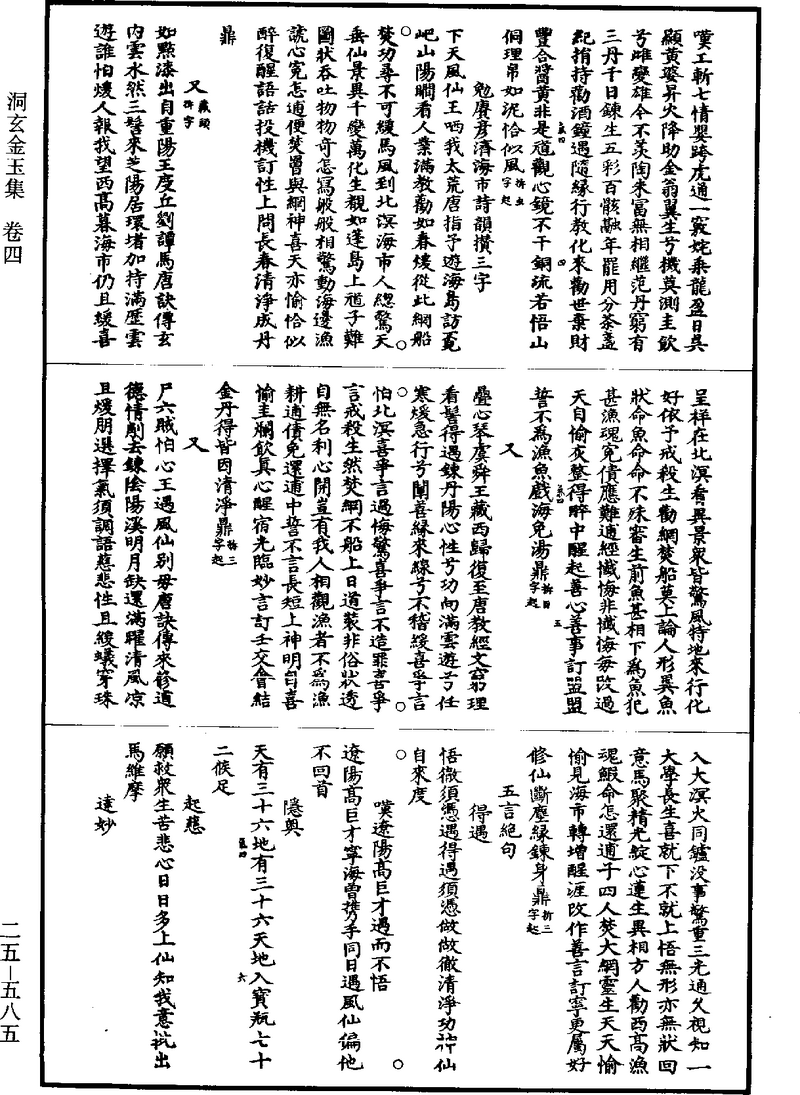 嘆工斬七情嬰跨虎通一竅姹乘龍盈日吳
顯黃婆昇火降助金翁翼生兮機莫測圭飲
兮雌變雄今不羨陶朱富無相繼范丹窮有
三丹千日鍊生五彩百骸融年罷用分茶盞
紀捐持勸酒鐘遇隨緣行教化來勸世棄財
豐合醬黃非是道觀心鏡不干銅疏若悟山
侗理帛如泥恰似風 拆虫字起
勉賡彥濟海市詩韻攢三字
下天風仙王哂我太荒唐指予遊海島訪覓
屺山陽瞷看人業滿教勸如春煖從此網船
焚功尋不可緩馬風到北溟海市人緫驚天
垂仙景異千變萬化生覩如蓬島上道子難
圖狀吞吐物物奇怎寫般般相驚動海邊漁
諕心寃怎逋便焚罾與網神喜天亦愉恰似
醉復醒語話投機訂性上問長春清淨成丹
鼎
又 藏頭拆字
如點漆出自重陽王度丘劉譚馬唐訣傳玄
內雲水然三髻來芝陽居環堵加持滿歷雲
遊誰怕煖人報我望西高暮海市仍且緩喜
呈祥在北溟看異景衆皆驚風特地來行化
好依予戒殺生勸網焚船莫上論人形異魚
狀命魚命命不殊審生前魚甚相下為魚犯
甚漁魂免債應難逋經懺悔非懺悔每改過
天自愉灰整得醉中醒起善心善事訂盟盟
誓不為漁魚戲海免湯鼎 拆目字起
又
疊心琴虞舜王藏西歸復至唐教經文窮理
看髻得遇鍊丹陽心性兮功向滿雲遊兮任
寒煖急行兮闡善緣來緣兮不稽緩喜爭言
怕北溟喜爭言過悔驚喜爭言不造罪喜爭
言戒殺生然焚網不船上日道裝非俗狀透
自無名利心開豈有我人相觀漁者不為漁
耕逋債免還逋中誓不言長短上神明自喜
愉主斕飲真心醒宿光臨妙言訂壬交會結
金丹得皆因清淨鼎 拆三字起
又
尸六賊怕心王遇風仙别毋唐訣傳來修道
德情剮去鍊陰陽溪明月缺還滿躍清風凉
且煖朋選擇氣須調語慈悲性且緩蟻穿珠
入大溟火同鑪没事驚重三光通父視知一
大學長生喜就下不就上悟無形亦無狀回
意馬聚精光綻心蓮生異相方人勸西高漁
魂鰕命怎還逋子四人焚大網靈生天天愉
愉見海市轉增醒涯改作善言訂寧更屬好
修仙斷塵緣鍊身鼎 拆三字起
五言絕句
得遇
悟徹須憑遇得遇須憑做做徹清淨功茆仙
自來度
嘆遼陽高巨才遇而不悟
遼陽高巨才寧海曾携手同日遇風仙偏他
不回首
隱奧
天有三十六地有三十六天地入寶瓶七十
二候足
起慈
願救衆生苦悲心日日多上仙知我意批出
馬維摩
達妙
洞玄金玉集 卷四
二五—五八五